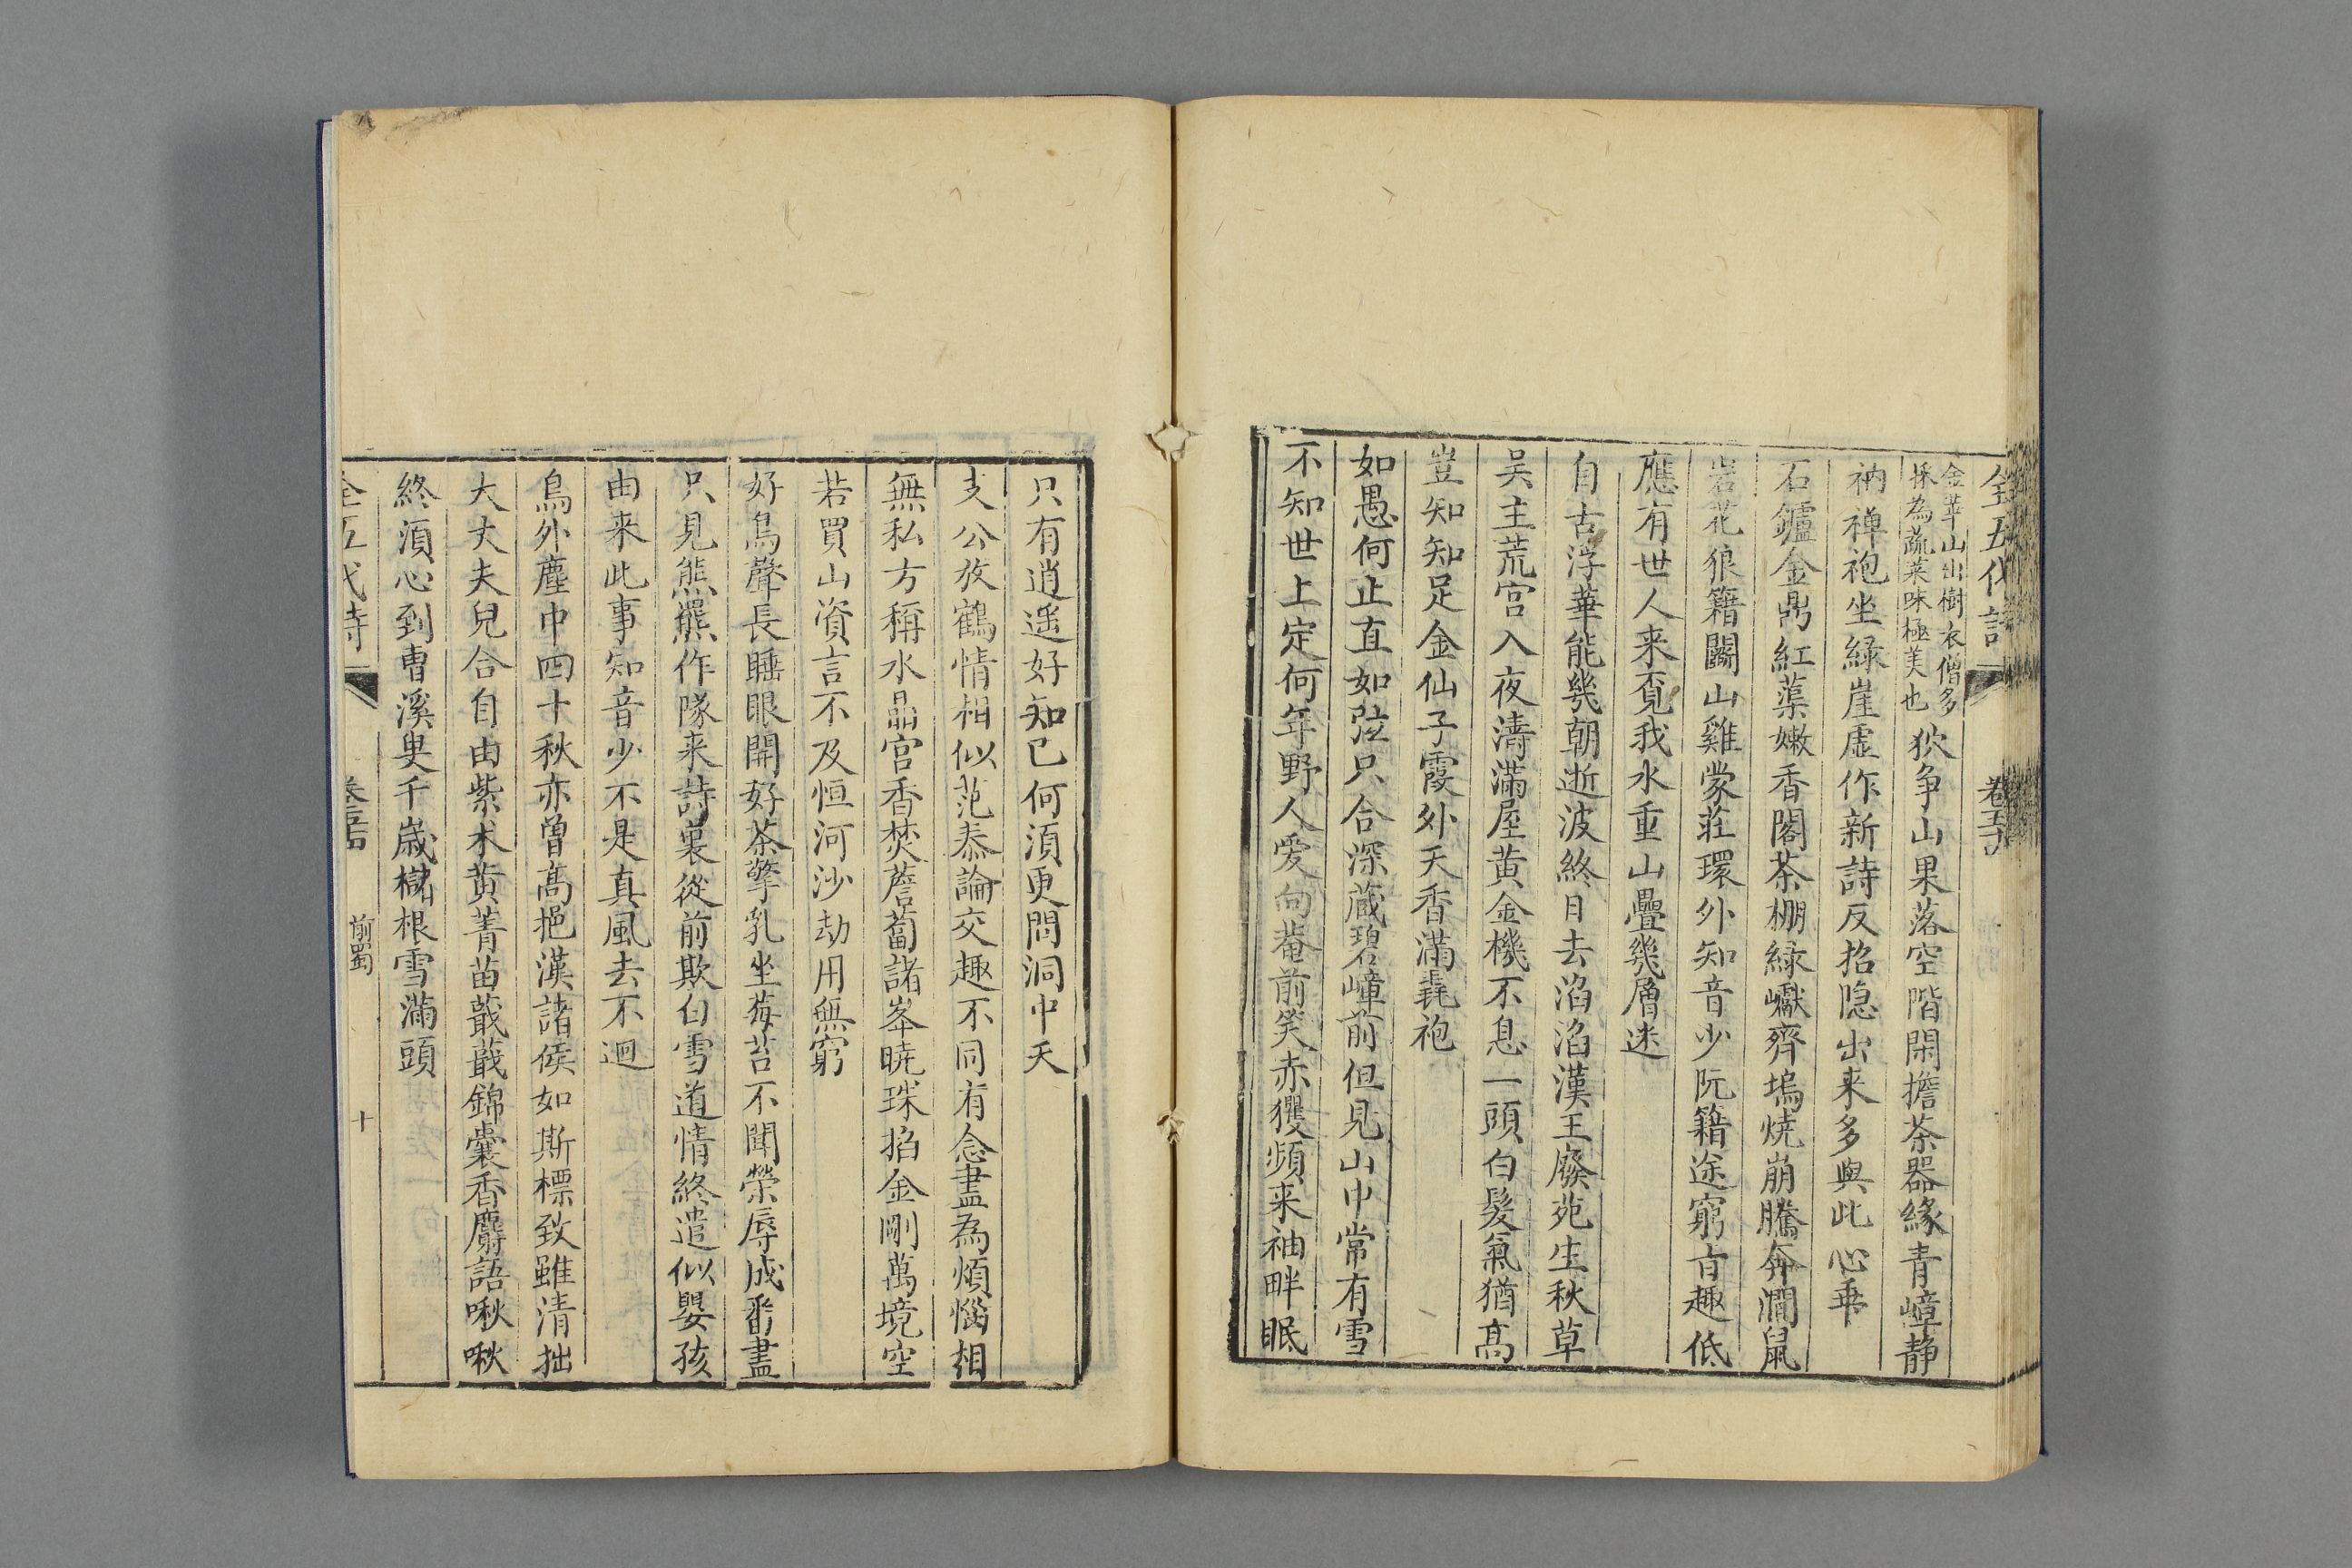 全五代詩
卷五十
金華山出樹衣僧多
採為蔬菜味極美也
狖争山果落空階閑擔茶器緣青嶂静
衲禅袍坐綠崖虛作新詩反招隐出来多與此心乖
石鑪金鼎紅蕖嫩香閣茶棚綠巘齊塢燒崩騰奔澗鼠
岩花狼籍鬭山雞蒙莊環外知音少阮籍途窮㫖趣低
應有世人来覔我水重山疊幾層迷
自古浮華能幾朝逝波終日去滔滔漢王廢苑生秋草
吴主荒宫入夜濤滿屋黄金機不息一頭白髮氣猶髙
豈知知足金仙子霞外天香滿毳袍
如愚何止直如弦只合深藏碧嶂前但見山中常有雪
不知世上定何年野人愛向菴前笑赤玃頻来袖畔眠
只有逍遥好知己何湏更問洞中天
支公放鶴情相似范泰論交趣不同有念盡為煩惱相
無私方稱水晶宫香焚薝蔔諸峯曉珠掐金剛萬境空
若買山資言不及恒河沙劫用無窮
好鳥聲長睡眼開好茶擎乳坐莓苔不聞榮辱成番盡
只見熊羆作隊来詩裏從前欺白雪道情終遣似嬰孩
由来此事知音少不是真風去不迴
鳥外塵中四十秋亦曾髙挹漢諸侯如斯標致雖清拙
大丈夫兒合自由紫术黄菁苗蕺蕺錦囊香麝語啾啾
終湏心到曹溪叟千歲櫧根雪滿頭
全五代詩
前蜀
十